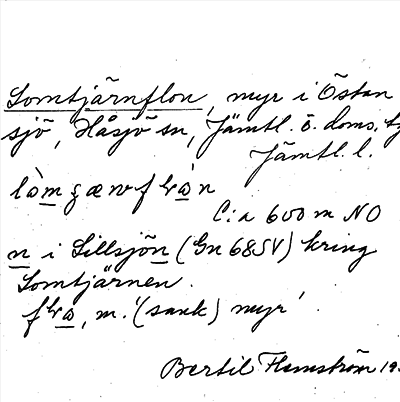 Lomtjärnflon, myr i Östan
sjö, Håsjö sn, Jämtl. ö. doms.
Jämtl. l.
C:a 600 m NO
n i Lillsjön (Gn 68SV) kring
Lomtjärnen.
m. '(sank) myr'
Bertil Flemström 19